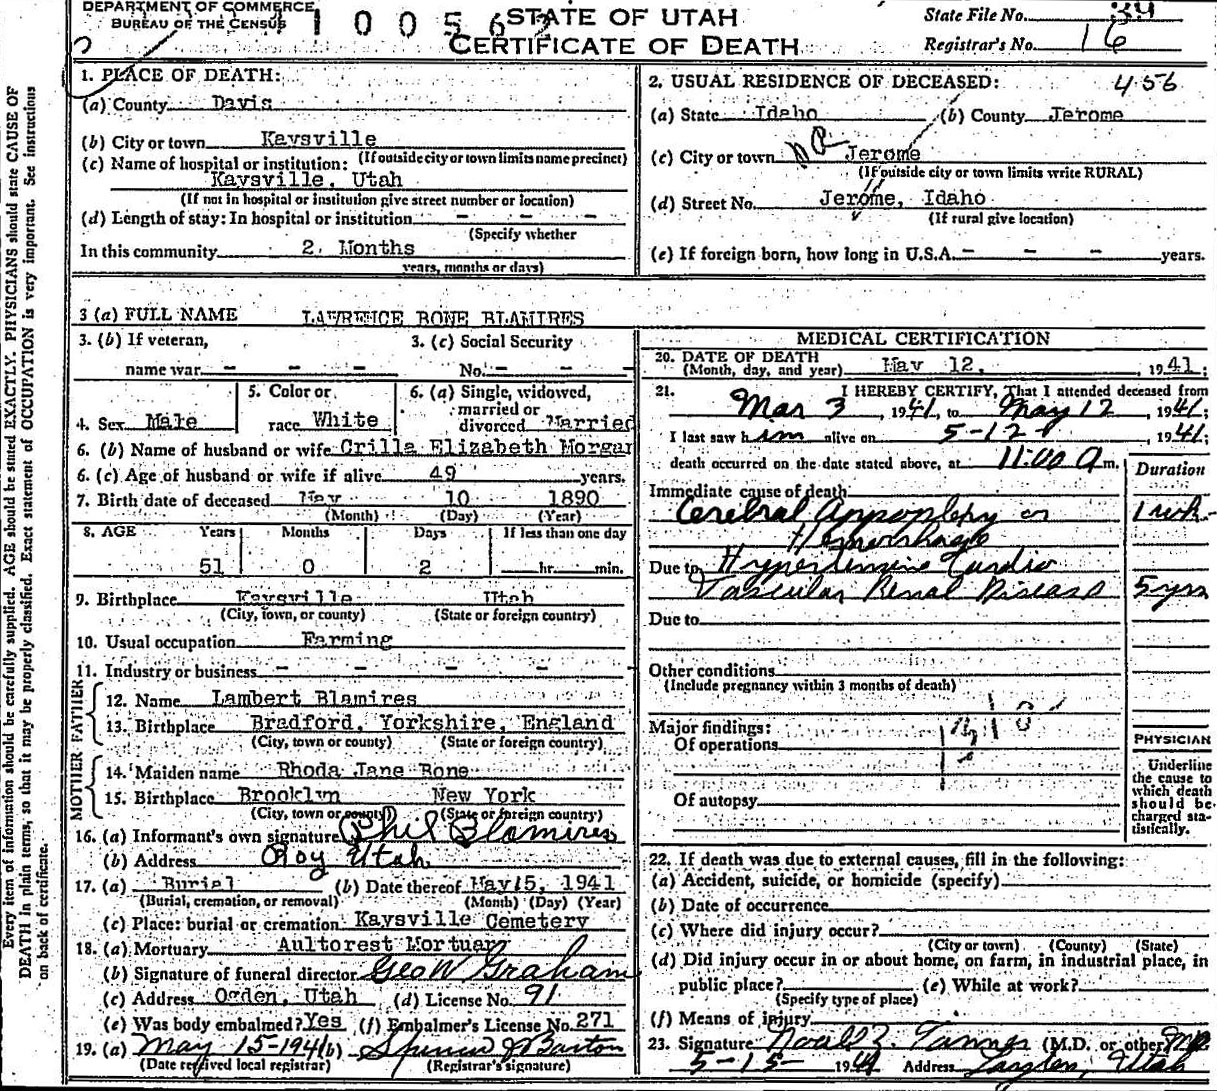 DEPARTMENT OF COMMERCE
BUREAU OF THE CENSUS
1 0 0 5 6
STATE OF UTAH
CERTIFICATE OF DEATH
State File No. 39
Registrar's No. 16
1. PLACE OF DEATH:
(a) County Davis
(b) City or town Kaysville
(If outside city or town limits name precinct)
(c) Name of hospital or institution:
Kaysville, Utah
(If not in hospital or institution give street number or location)
(d) Length of stay: In hospital or institution – – –
(Specify whether
In this community 2 Months
years, months or days)
2. USUAL RESIDENCE OF DECEASED: 456
(a) State Idaho (b) County Jerome
(c) City or town Jerome
(If outside city or town limits write RURAL)
(d) Street No. Jerome, Idaho
(If rural give location)
(e) If foreign born, how long in U.S.A. – – – years.
3 (a) FULL NAME LAWRENCE BONE BLAMIRES
3. (b) If veteran,
name war – – –
3. (c) Social Security
No. – – –
4. Sex Male
5. Color or
race White
6. (a) Single, widowed,
married or
divorced Married
6. (b) Name of husband or wife Crilla Elizabeth Morgan
6. (c) Age of husband or wife if alive 49 years.
7. Birth date of deceased May 10 1890
(Month) (Day) (Year)
8. AGE Years Months Days If less than one day
51 0 2 hr. min.
9. Birthplace Kaysville Utah
(City, town, or county) (State or foreign country)
10. Usual occupation Farming
11. Industry or business – – – –
FATHER
12. Name Lambert Blamires
13. Birthplace Bradford, Yorkshire, England
(City, town or county) (State or foreign country)
MOTHER
14. Maiden name Rhoda Jane Bone
15. Birthplace Brooklyn New York
(City, town or county) (State or foreign country)
16. (a) Informant's own signature Phil Blamires
(b) Address Roy Utah
17. (a) Burial (b) Date thereof May 15, 1941
(Burial, cremation, or removal) (Month) (Day) (Year)
(c) Place: burial or cremation Kaysville Cemetery
18. (a) Mortuary Aultorest Mortuary
(b) Signature of funeral director Geo W Graham
(c) Address Ogden, Utah (d) License No. 91
(e) Was body embalmed? Yes (f) Embalmer's License No. 271
19. (a) May 15-1941 (b) Spencer J Barton
(Date received local registrar) (Registrar's signature)
MEDICAL CERTIFICATION
20. DATE OF DEATH
(Month, day, and year) May 12, 1941;
21. I HEREBY CERTIFY, That I attended deceased from
Mar 3, 1941, to May 12, 1941;
I last saw him alive on 5-12, 1941;
death occurred on the date stated above, at 11:00 A m.
Duration
Immediate cause of death
Cerebral Appoplexy or 1 wk-
Hemorrhage
Due to Hypertensive Cardio
Vascular Renal Disease 5 yrs
Due to
Other conditions
(Include pregnancy within 3 months of death)
Major findings:
Of operations
Of autopsy
PHYSICIAN
Underline
the cause to
which death
should be
charged sta-
tistically.
22. If death was due to external causes, fill in the following:
(a) Accident, suicide, or homicide (specify)
(b) Date of occurrence
(c) Where did injury occur?
(City or town) (County) (State)
(d) Did injury occur in or about home, on farm, in industrial place, in
public place? (e) While at work?
(Specify type of place)
(f) Means of injury
23. Signature Noall Z. Tanner (M.D. or other) MD
5-15- 1941 Address Layton, Utah
Every item of information should be carefully supplied. AGE should be stated EXACTLY. PHYSICIANS should state CAUSE OF
DEATH in plain terms, so that it may be properly classified. Exact statement of OCCUPATION is very important. See instructions
on back of certificate.